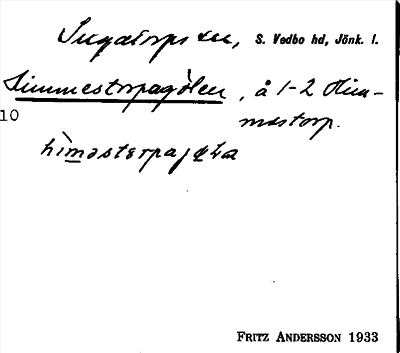 Ingatorps sn, S. Vedbo hd, Jönk. l.
Himmestorpagölen, å 1-2 Him-
10
mestorp.
hìməsterpajφ̀la
FRITZ ANDERSSON 1933